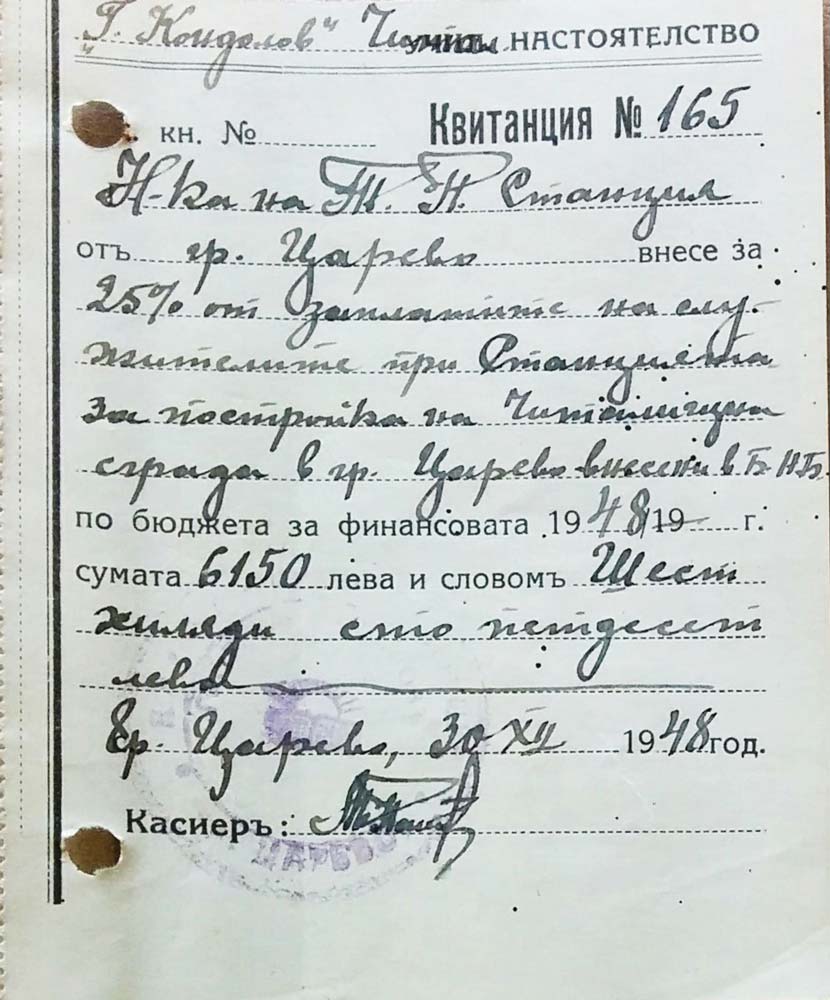 „Г. Кондолов“ Читал. НАСТОЯТЕЛСТВО
кн. № Квитанция № 165
Н-ка на Т. П. Станция
отъ гр. Царево внесе за
25% от заплатите на слу-
жителите при Станцията
за постройка на Читалищна
сграда в гр. Царево внесени в Б Н Б.
по бюджета за финансовата 1948/19 г.
сумата 6150 лева и словомъ Шест
хиляди сто петдесет
лева
Гр. Царево, 30 XII 1948 год.
Касиеръ:
ЦАРЕВО